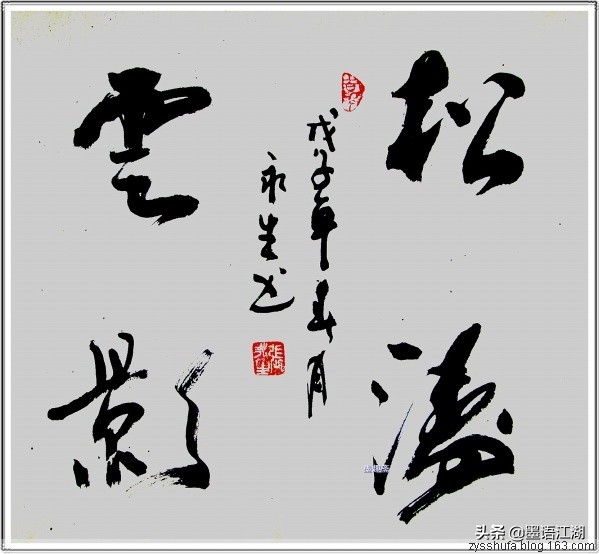 松濤
雲影
戊子年春月
永生书
张永生
头条@墨语江湖
zysshufa.blog.163.com